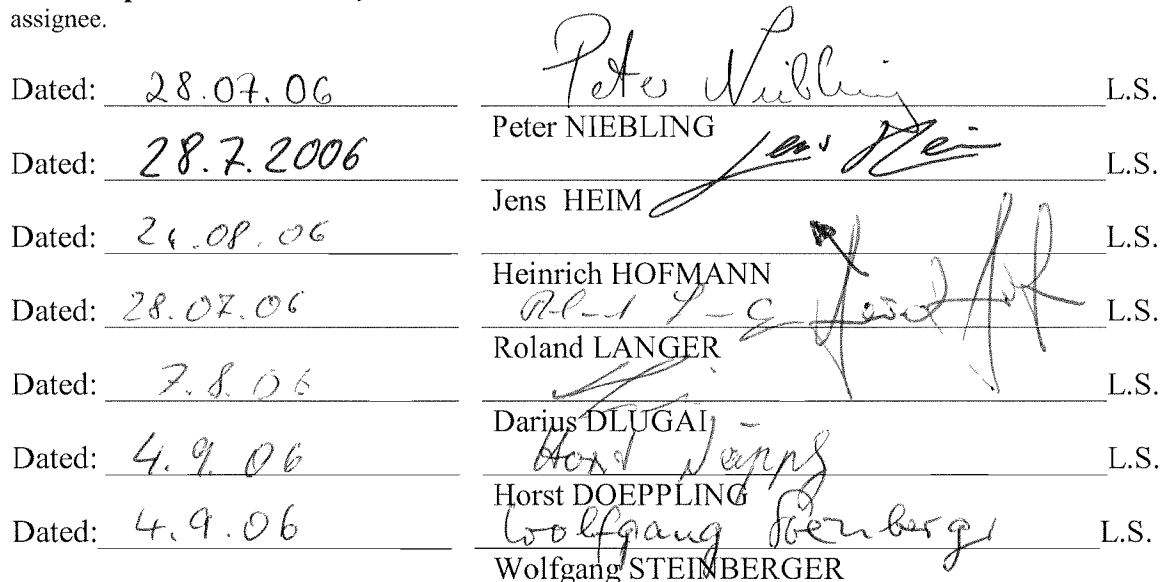 assignee.
Dated: 28.07.06 Peter Niebling L.S.
Peter NIEBLING
Dated: 28.7.2006 Jens Heim L.S.
Jens HEIM
Dated: 08.06 L.S.
Heinrich HOFMANN
Dated: 28.07.06 L.S.
Roland LANGER
Dated: 7.8.06 L.S.
Darius DLUGAI
Dated: 4.9.06 Horst Döppling L.S.
Horst DOEPPLING
Dated: 4.9.06 Wolfgang Steinberger L.S.
Wolfgang STEINBERGER